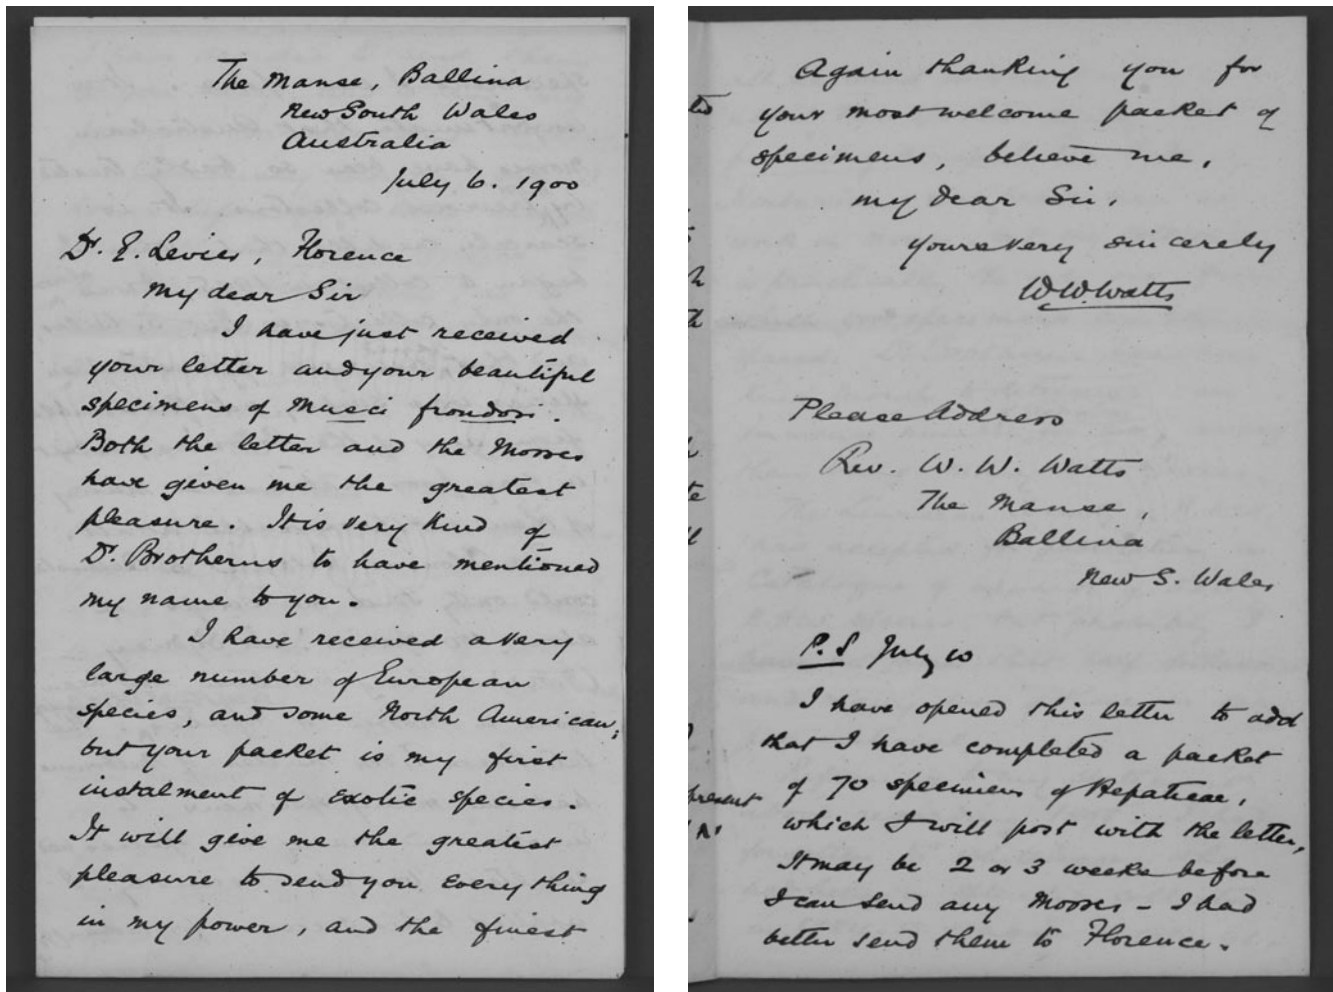 The Manse, Ballina
New South Wales
Australia
July 6. 1900
Dr. E. Levier, Florence
My dear Sir
I have just received
your letter and your beautiful
specimens of Musci frondosi.
Both the letter and the Mosses
have given me the greatest
pleasure. It is very kind of
Dr. Brotherus to have mentioned
my name to you.
I have received a very
large number of European
species, and some North American;
but your packet is my first
instalment of exotic species.
It will give me the greatest
pleasure to send you everything
in my power, and the finest
Again thanking you for
your most welcome packet of
specimens, believe me,
my dear Sir,
yours very sincerely
W.W. Watts
Please Address
Rev. W. W. Watts
The Manse,
Ballina
New S. Wales
P.S July 10
I have opened this letter to add
that I have completed a packet
of 70 specimens of Hepaticae,
which I will post with the letter,
It may be 2 or 3 weeks before
I can send any Mosses - I had
better send them to Florence.